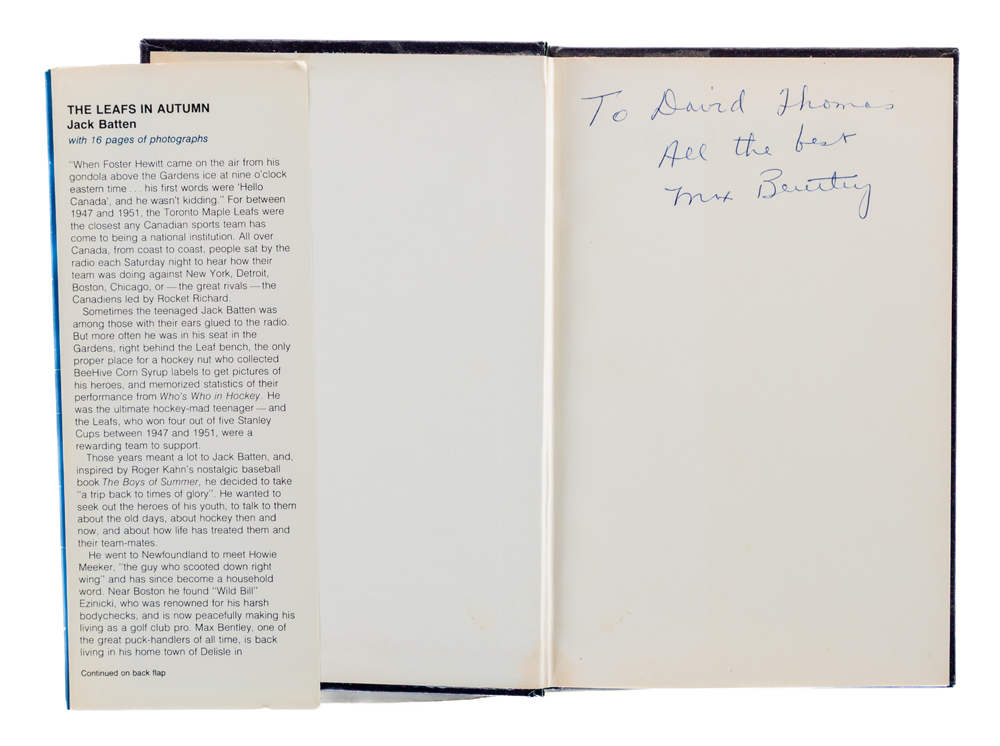 THE LEAFS IN AUTUMN
Jack Batten
with 16 pages of photographs
"When Foster Hewitt came on the air from his
gondola above the Gardens ice at nine o'clock
eastern time . . . his first words were 'Hello
Canada', and he wasn't kidding." For between
1947 and 1951, the Toronto Maple Leafs were
the closest any Canadian sports team has
come to being a national institution. All over
Canada, from coast to coast, people sat by the
radio each Saturday night to hear how their
team was doing against New York, Detroit,
Boston, Chicago, or — the great rivals — the
Canadiens led by Rocket Richard.
Sometimes the teenaged Jack Batten was
among those with their ears glued to the radio.
But more often he was in his seat in the
Gardens, right behind the Leaf bench, the only
proper place for a hockey nut who collected
BeeHive Corn Syrup labels to get pictures of
his heroes, and memorized statistics of their
performance from Who's Who in Hockey. He
was the ultimate hockey-mad teenager — and
the Leafs, who won four out of five Stanley
Cups between 1947 and 1951, were a
rewarding team to support.
Those years meant a lot to Jack Batten, and,
inspired by Roger Kahn's nostalgic baseball
book The Boys of Summer, he decided to take
"a trip back to times of glory". He wanted to
seek out the heroes of his youth, to talk to them
about the old days, about hockey then and
now, and about how life has treated them and
their team-mates.
He went to Newfoundland to meet Howie
Meeker, "the guy who scooted down right
wing" and has since become a household
word. Near Boston he found "Wild Bill"
Ezinicki, who was renowned for his harsh
bodychecks, and is now peacefully making his
living as a golf club pro. Max Bentley, one of
the great puck-handlers of all time, is back
living in his home town of Delisle in
Continued on back flap
To David Thomas
All the best
Max Bentley